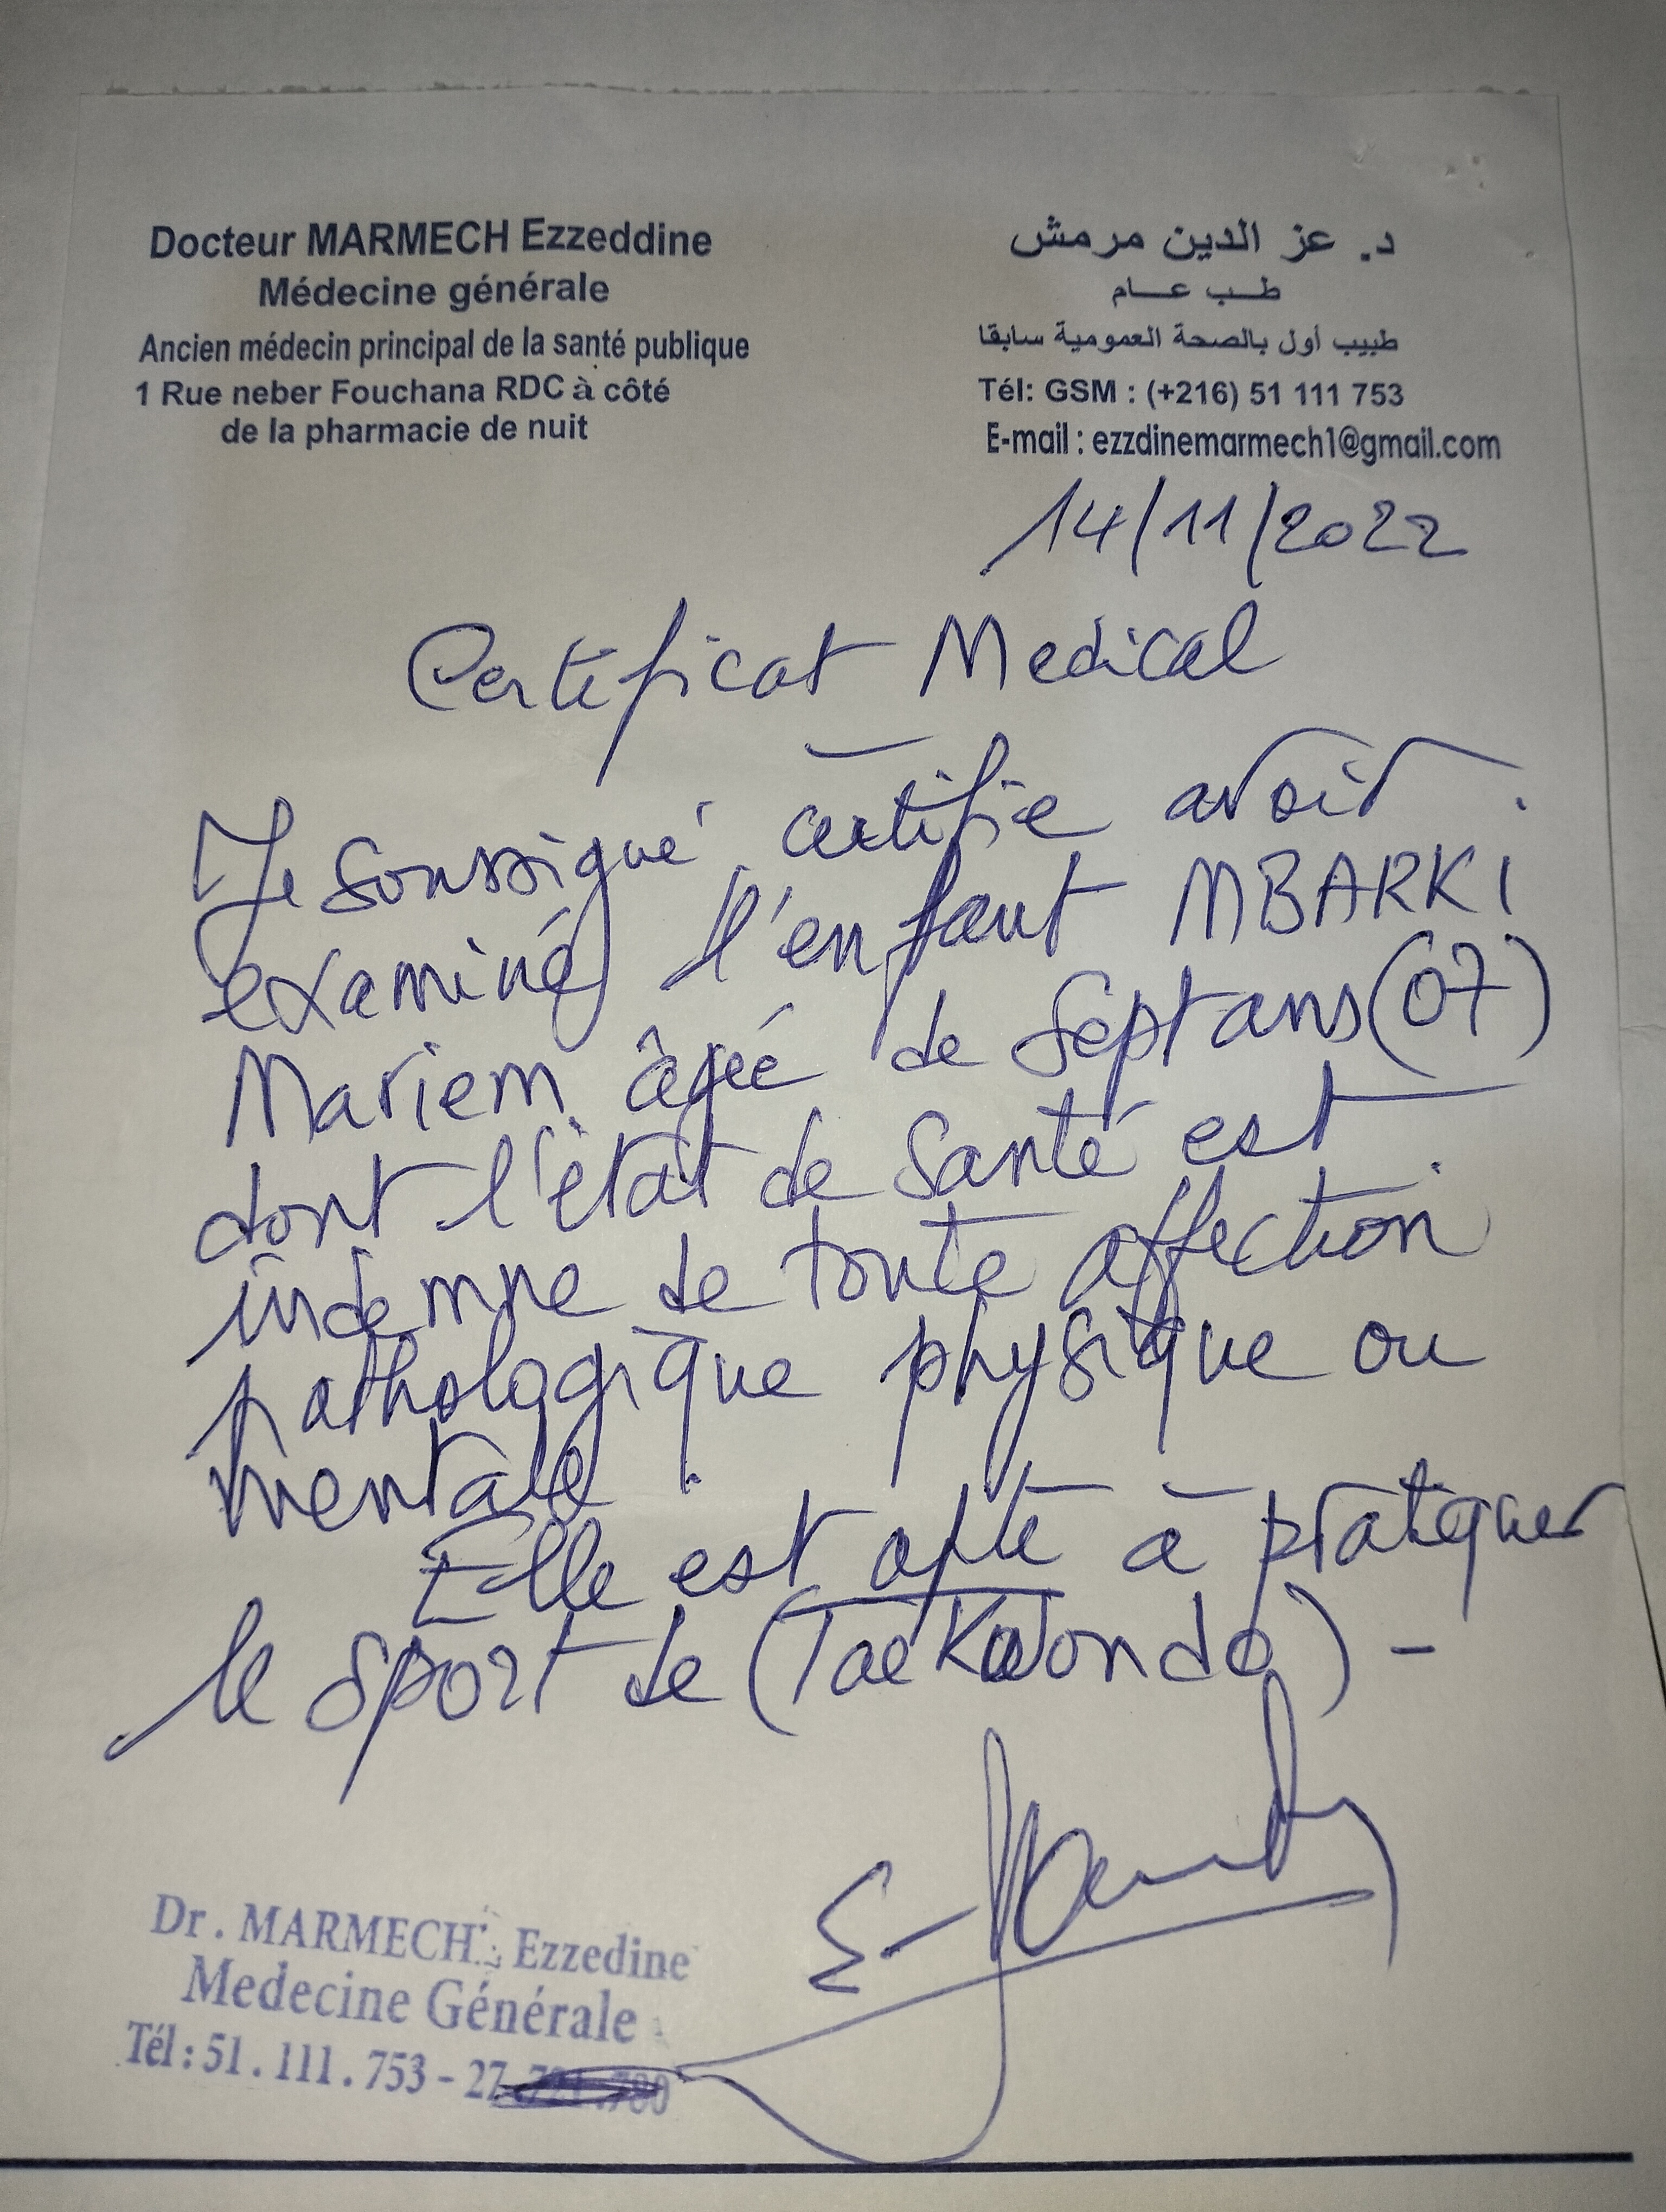 Docteur MARMECH Ezzeddine
Médecine générale
Ancien médecin principal de la santé publique
1 Rue neber Fouchana RDC à côté
de la pharmacie de nuit
د. عز الدين مرمش
طب عام
طبيب أول بالصحة العمومية سابقا
Tél: GSM : (+216) 51 111 753
E-mail : ezzdinemarmech1@gmail.com
14/11/2022
Certificat Medical
Je soussigné certifie avoir
examiné l'enfant MBARKI
Mariem âgée de Sept ans (07)
dont l'état de santé est
indemne de toute affection
pathologique physique ou
mentale.
Elle est apte à pratiquer
le sport de (Taekwondo) -
Dr. MARMECH Ezzedine
Medecine Générale
Tél : 51 . 111 . 753 - 27